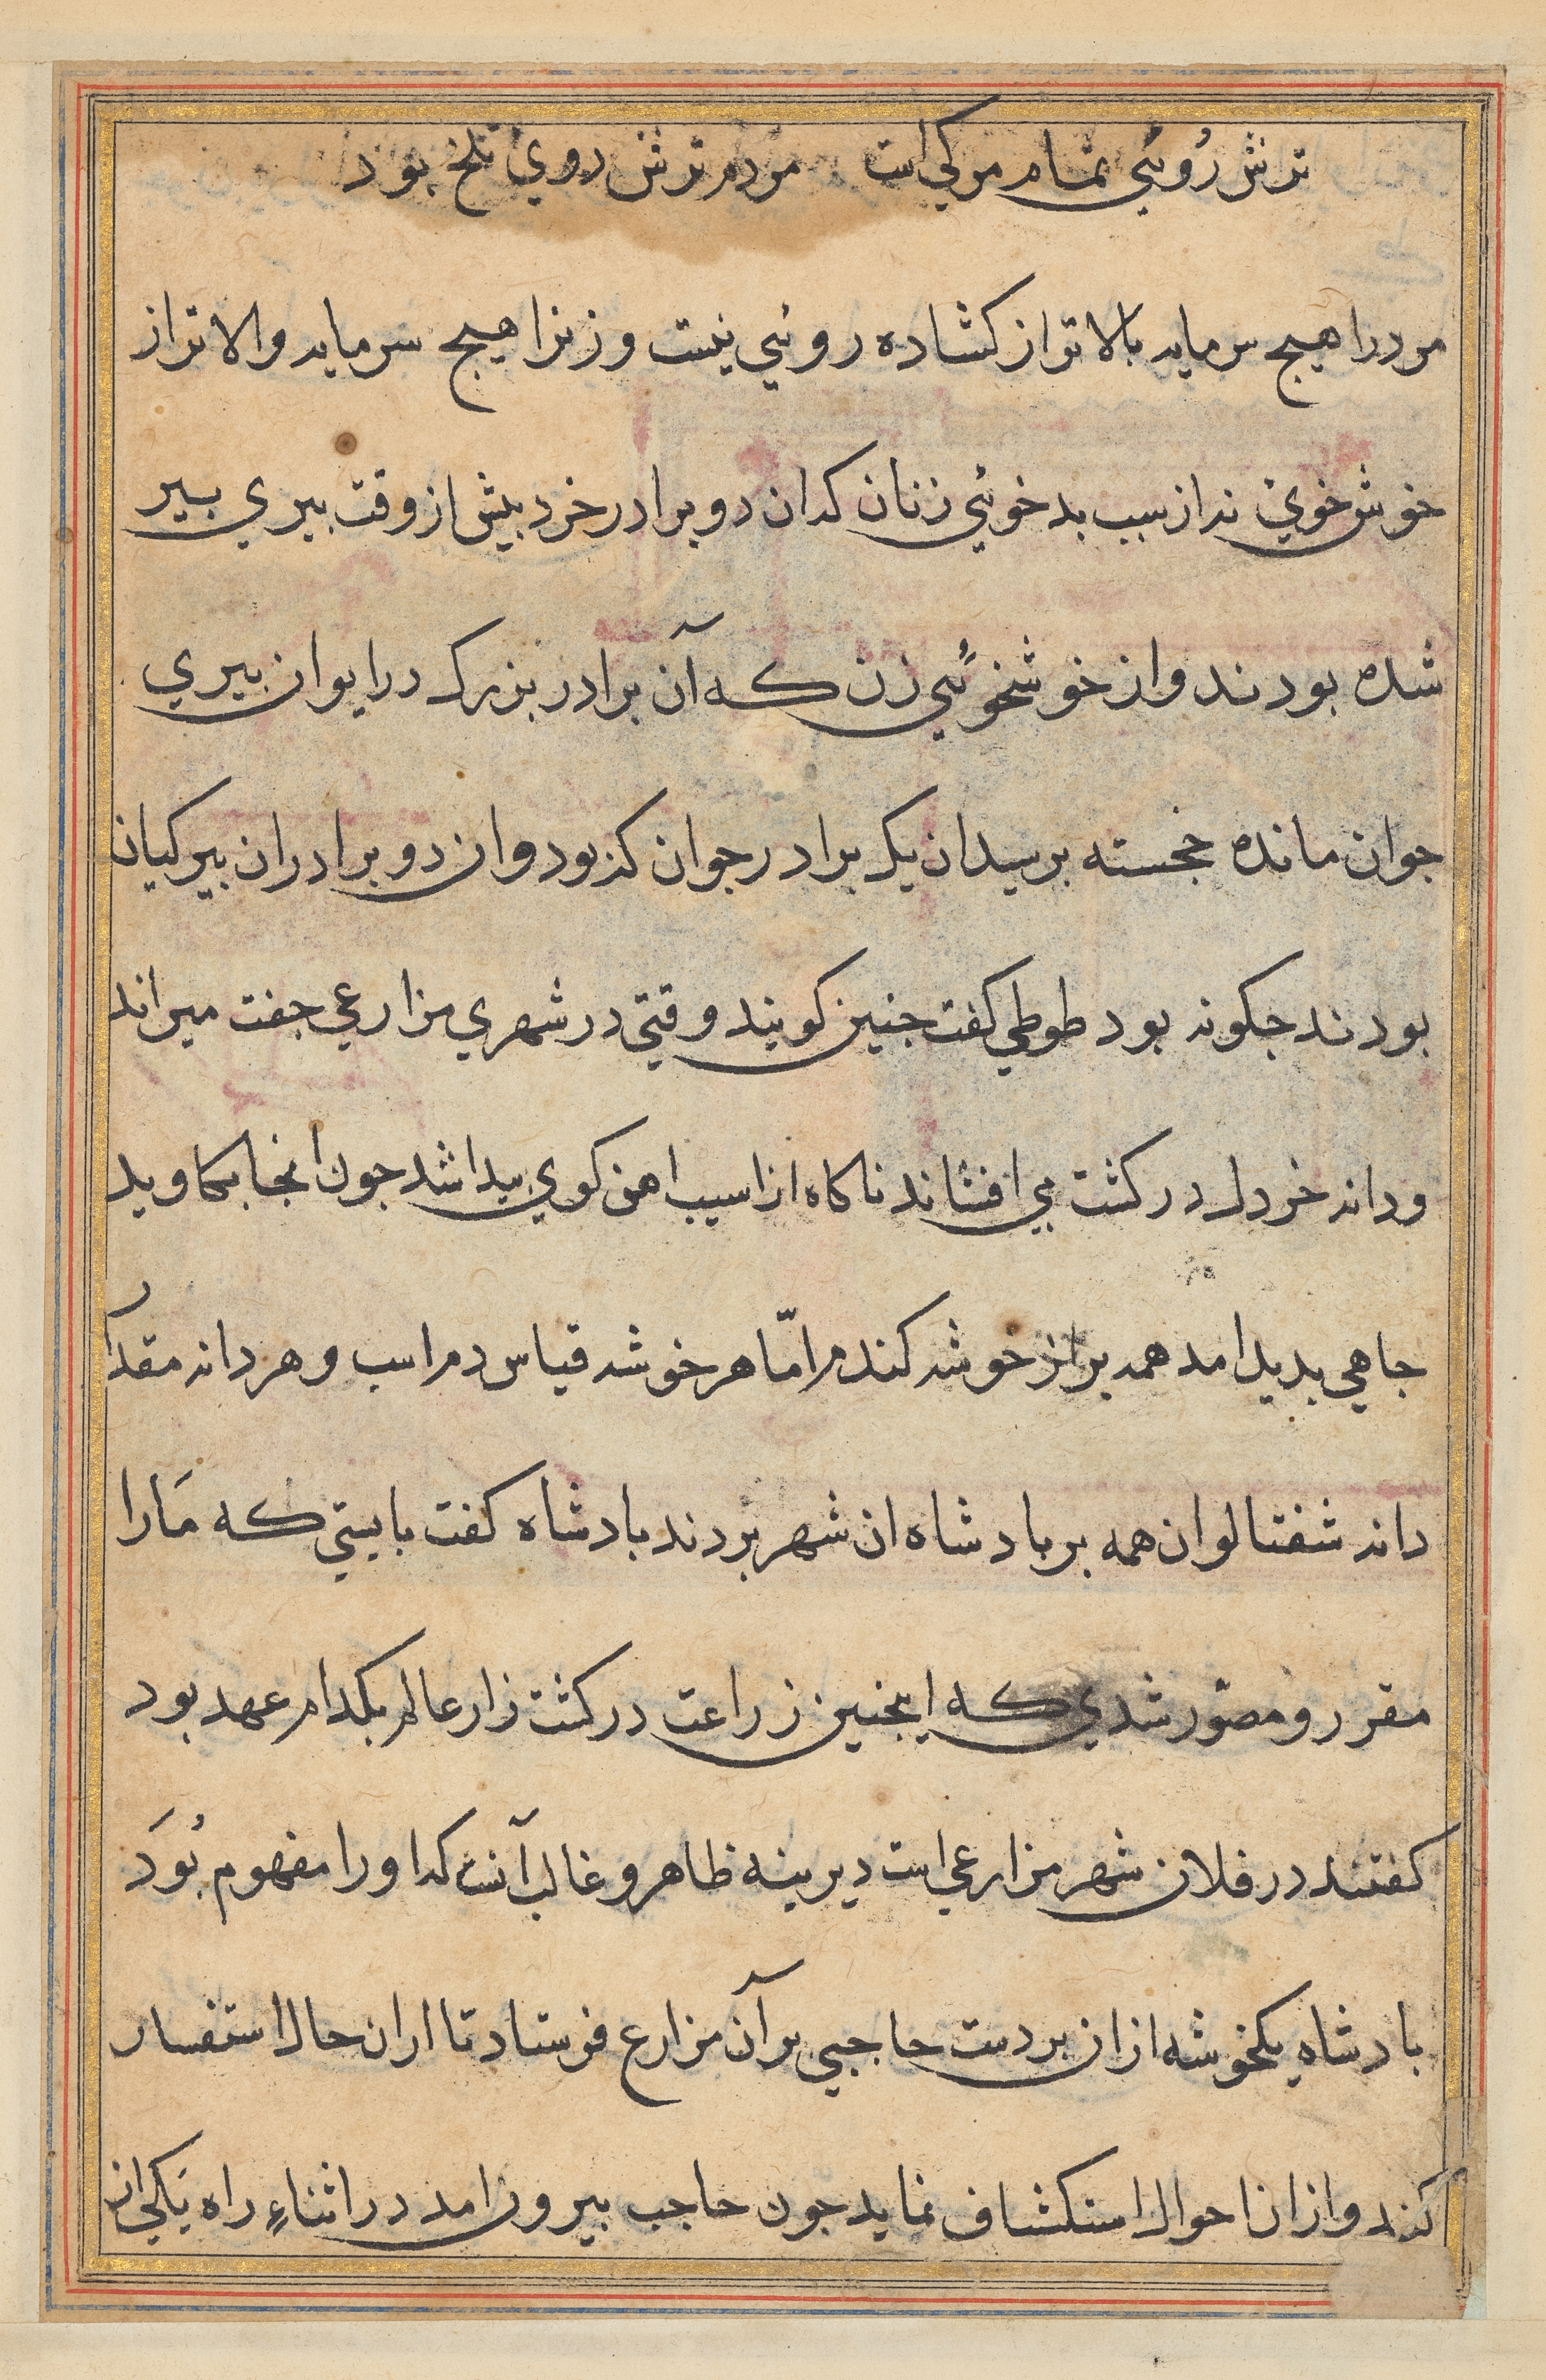 ترش رُوئي تمام مركي است مردم ترش روي تلخ بود
مرد را هيچ سرمايه بالاتر از كشاده روئي نيست و زنرا هيچ سرمايه والاتر از
خوش خوي نه از سبب بدخوئي زنان كه ان دو برادر خرد بيش از وقت بيري بير
شده بودند و از خوشخوئي زن كه آن برادر بزرك در ايوان بيري
جوان مانده خجسته برسيد ان يك برادر جوان كه بود و ان دو برادران بير كيان
بودند جكونه بود طوطي كفت جنين كويند وقتي در شهري مزارعي جفت ميراند
و دانه خردل در كشت مي افشاند ناكاه از اسيب اهن كوي بيدا شد جون انجا بكاويد
جاهي بديد امد همه بر از خوشه كندم امّا هر خوشه قياس دم اسب و هر دانه مقدار
دانه شفتالو ان همه بر بادشاه ان شهر بردند بادشاه كفت بايستي كه مَارا
مقرر و مصوّر شدي كه اينجنين زراعت در كشت زار عالم بكدام عهد بود
كفتند در فلان شهر مزارعي است ديرينه ظاهر و غالب آنست كه او را مفهوم بُوَد
بادشاه يكخوشه از ان بر دست حاجبي بر آن مزارع فرستاد تا اران حال استفسار
كند و از ان احوال استكشاف نمايد جون حاجب بيرون امد در اثناءِ راه يَكي از